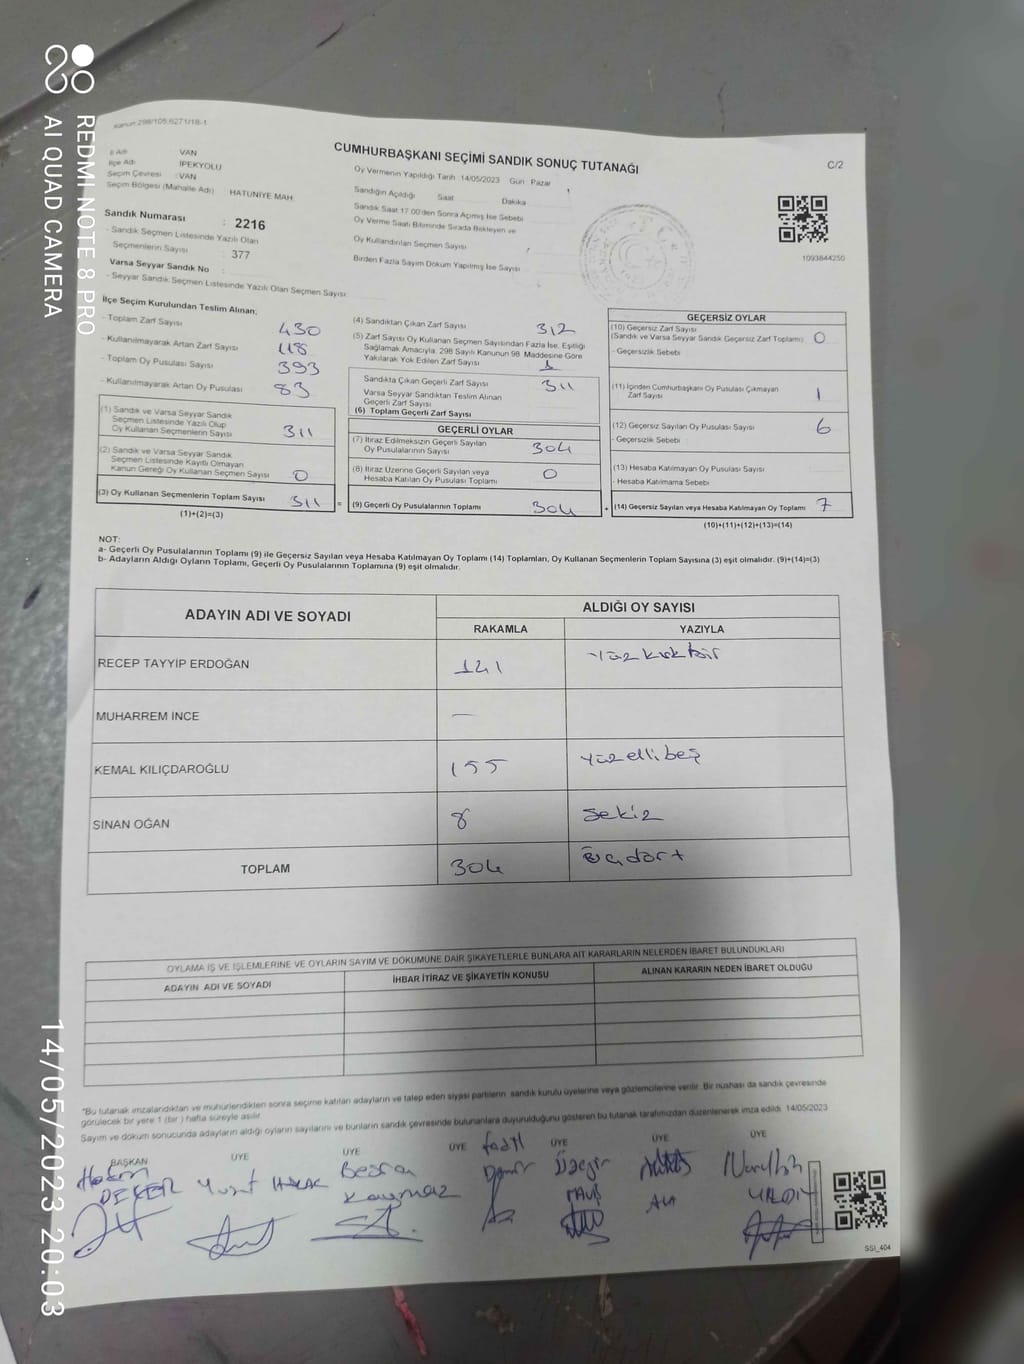 Kanun 298/105,6271/18-1
CUMHURBAŞKANI SEÇİMİ SANDIK SONUÇ TUTANAĞI
C/2
İl Adı VAN
İlçe Adı İPEKYOLU
Seçim Çevresi :VAN
Seçim Bölgesi (Mahalle Adı) : HATUNİYE MAH.
Oy Vermenin Yapıldığı Tarih :14/05/2023 Gün : Pazar
Sandığın Açıldığı Saat Dakika
Sandık Saat 17.00'den Sonra Açılmış İse Sebebi
Oy Verme Saati Bitiminde Sırada Bekleyen ve
Oy Kullandırılan Seçmen Sayısı
Birden Fazla Sayım Döküm Yapılmış İse Sayısı
1093844250
Sandık Numarası : 2216
- Sandık Seçmen Listesinde Yazılı Olan
Seçmenlerin Sayısı : 377
Varsa Seyyar Sandık No :
- Seyyar Sandık Seçmen Listesinde Yazılı Olan Seçmen Sayısı:
İlçe Seçim Kurulundan Teslim Alınan;
- Toplam Zarf Sayısı 430
- Kullanılmayarak Artan Zarf Sayısı 118
- Toplam Oy Pusulası Sayısı 393
- Kullanılmayarak Artan Oy Pusulası 83
(1) Sandık ve Varsa Seyyar Sandık
Seçmen Listesinde Yazılı Olup
Oy Kullanan Seçmenlerin Sayısı 311
(2) Sandık ve Varsa Seyyar Sandık
Seçmen Listesinde Kayıtlı Olmayan
Kanun Gereği Oy Kullanan Seçmen Sayısı 0
(3) Oy Kullanan Seçmenlerin Toplam Sayısı 311
(1)+(2)=(3)
(4) Sandıktan Çıkan Zarf Sayısı 312
(5) Zarf Sayısı Oy Kullanan Seçmen Sayısından Fazla İse, Eşitliği
Sağlamak Amacıyla, 298 Sayılı Kanunun 98. Maddesine Göre
Yakılarak Yok Edilen Zarf Sayısı 1
Sandıkta Çıkan Geçerli Zarf Sayısı 311
Varsa Seyyar Sandıktan Teslim Alınan
Geçerli Zarf Sayısı
(6) Toplam Geçerli Zarf Sayısı
GEÇERLİ OYLAR
(7) İtiraz Edilmeksizin Geçerli Sayılan
Oy Pusulalarının Sayısı 304
(8) İtiraz Üzerine Geçerli Sayılan veya
Hesaba Katılan Oy Pusulası Toplamı 0
= (9) Geçerli Oy Pusulalarının Toplamı 304 +
GEÇERSİZ OYLAR
(10) Geçersiz Zarf Sayısı
(Sandık ve Varsa Seyyar Sandık Geçersiz Zarf Toplamı) 0
- Geçersizlik Sebebi
(11) İçinden Cumhurbaşkanı Oy Pusulası Çıkmayan
Zarf Sayısı 1
(12) Geçersiz Sayılan Oy Pusulası Sayısı 6
- Geçersizlik Sebebi
(13) Hesaba Katılmayan Oy Pusulası Sayısı
- Hesaba Katılmama Sebebi
(14) Geçersiz Sayılan veya Hesaba Katılmayan Oy Toplamı 7
(10)+(11)+(12)+(13)=(14)
NOT:
a- Geçerli Oy Pusulalarının Toplamı (9) ile Geçersiz Sayılan veya Hesaba Katılmayan Oy Toplamı (14) Toplamları, Oy Kullanan Seçmenlerin Toplam Sayısına (3) eşit olmalıdır. (9)+(14)=(3)
b- Adayların Aldığı Oyların Toplamı, Geçerli Oy Pusulalarının Toplamına (9) eşit olmalıdır.
ADAYIN ADI VE SOYADI
ALDIĞI OY SAYISI
RAKAMLA YAZIYLA
RECEP TAYYİP ERDOĞAN 141 Yüzkırkbir
MUHARREM İNCE —
KEMAL KILIÇDAROĞLU 155 Yüzellibeş
SİNAN OĞAN 8 Sekiz
TOPLAM 304
OYLAMA İŞ VE İŞLEMLERİNE VE OYLARIN SAYIM VE DÖKÜMÜNE DAİR ŞİKAYETLERLE BUNLARA AİT KARARLARIN NELERDEN İBARET BULUNDUKLARI
ADAYIN ADI VE SOYADI İHBAR İTİRAZ VE ŞİKAYETİN KONUSU ALINAN KARARIN NEDEN İBARET OLDUĞU
*Bu tutanak imzalandıktan ve mühürlendikten sonra seçime katılan adayların ve talep eden siyasi partilerin sandık kurulu üyelerine veya gözlemcilerine verilir. Bir nüshası da sandık çevresinde
görülecek bir yere 1 (bir) hafta süreyle asılır.
Sayım ve döküm sonucunda adayların aldığı oyların sayılarını ve bunların sandık çevresinde bulunanlara duyurulduğunu gösteren bu tutanak tarafımızdan düzenlenerek imza edildi. 14/05/2023
BAŞKAN ÜYE ÜYE ÜYE ÜYE ÜYE ÜYE
SSI_404
REDMI NOTE 8 PRO
AI QUAD CAMERA
14/05/2023 20:03